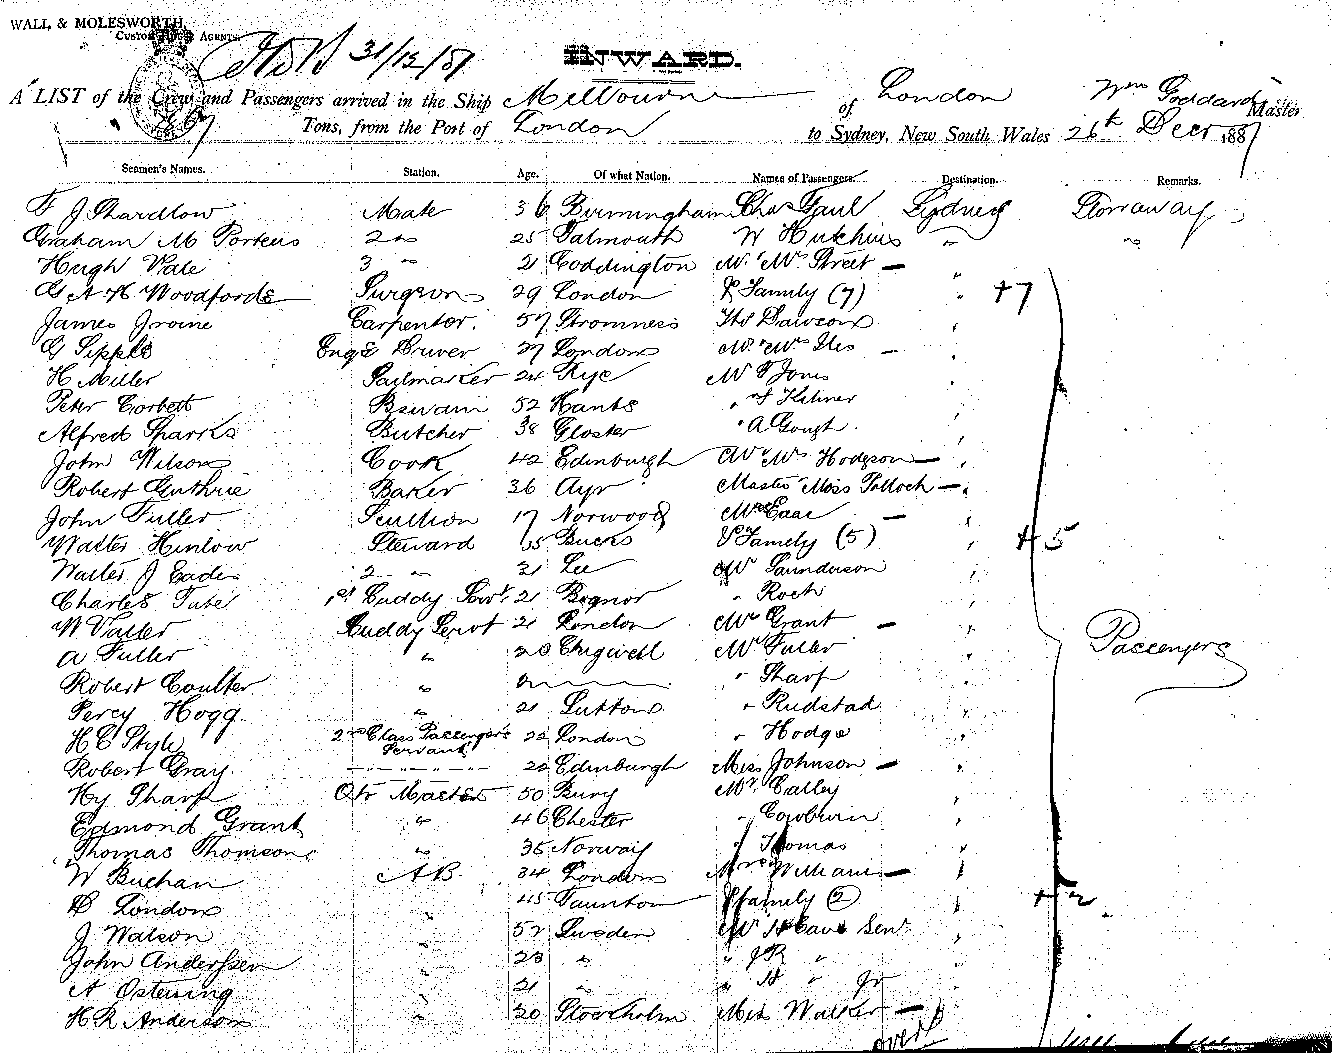 WALL, & MOLESWORTH,
CUSTOM HOUSE AGENTS.
31/12/87
INWARD.
A LIST of the Crew and Passengers arrived in the Ship Melbourne of London Wm Goddard Master
Tons, from the Port of London to Sydney, New South Wales 26th Decr 1887
Seamen's Names. Station. Age. Of what Nation. Names of Passengers. Destination. Remarks.
F J Shardlow Mate 36 Birmingham Chas Gaul Sydney Storaway
Graham M Porteus 2 " 25 Falmouth W Hutchins " "
Hugh Vale 3 " 21 Coddington Mr. Mrs Street — "
A H Woodforde Surgeon 29 London & Family (7) " +7
James Irvine Carpenter. 57 Stromness Dawson "
G Sipple Engs Driver 27 London Mr. Mrs Iles — "
H Miller Sailmaker 24 Rye Mr F Jones "
Peter Corbett Boswain 52 Hants " "
Alfred Sparks Butcher 38 Gloster " A Gough "
John Wilson Cook 42 Edinburgh Mr Mrs Hodgson — "
Robert Guthrie Baker 36 Ayr Master Miss Pollock — "
John Fuller Scullion 17 Norwood Mrs — "
Walter Steward 35 Bucks & Family (5) " +5
Walter J Eades 2 " 21 Lee Mr Saunderson "
Charles Tubel 1st Cuddy Servt 21 Bognor " Roch "
W Vatler Cuddy Servt 21 London Mrs Grant — "
A Fuller " 20 Chigwell Mr Fuller "
Robert Coulter " " Sharp "
Percy Hogg " 21 Sutton " Rudstad "
H C Style 2nd Class Passengers Servant 22 London " Hodge "
Robert Gray 22 Edinburgh Miss Johnson — "
Hy Sharp Qtr Master 50 Bury Mr. Calley "
Edmond Grant " 46 Chester " Cowburn "
Thomas Thomson " 35 Norway " Thomas "
W Buchan AB 34 London Mrs William — "
London " 45 Taunton & family (2) " +2
J Watson " 52 Sweden Mr H Cave Senr "
John Anderssen " 23 " " J R " "
A Ostering " 21 " " H " Jr "
H R Anderson " 20 Stockholm Miss Walker — "
Passengers
over